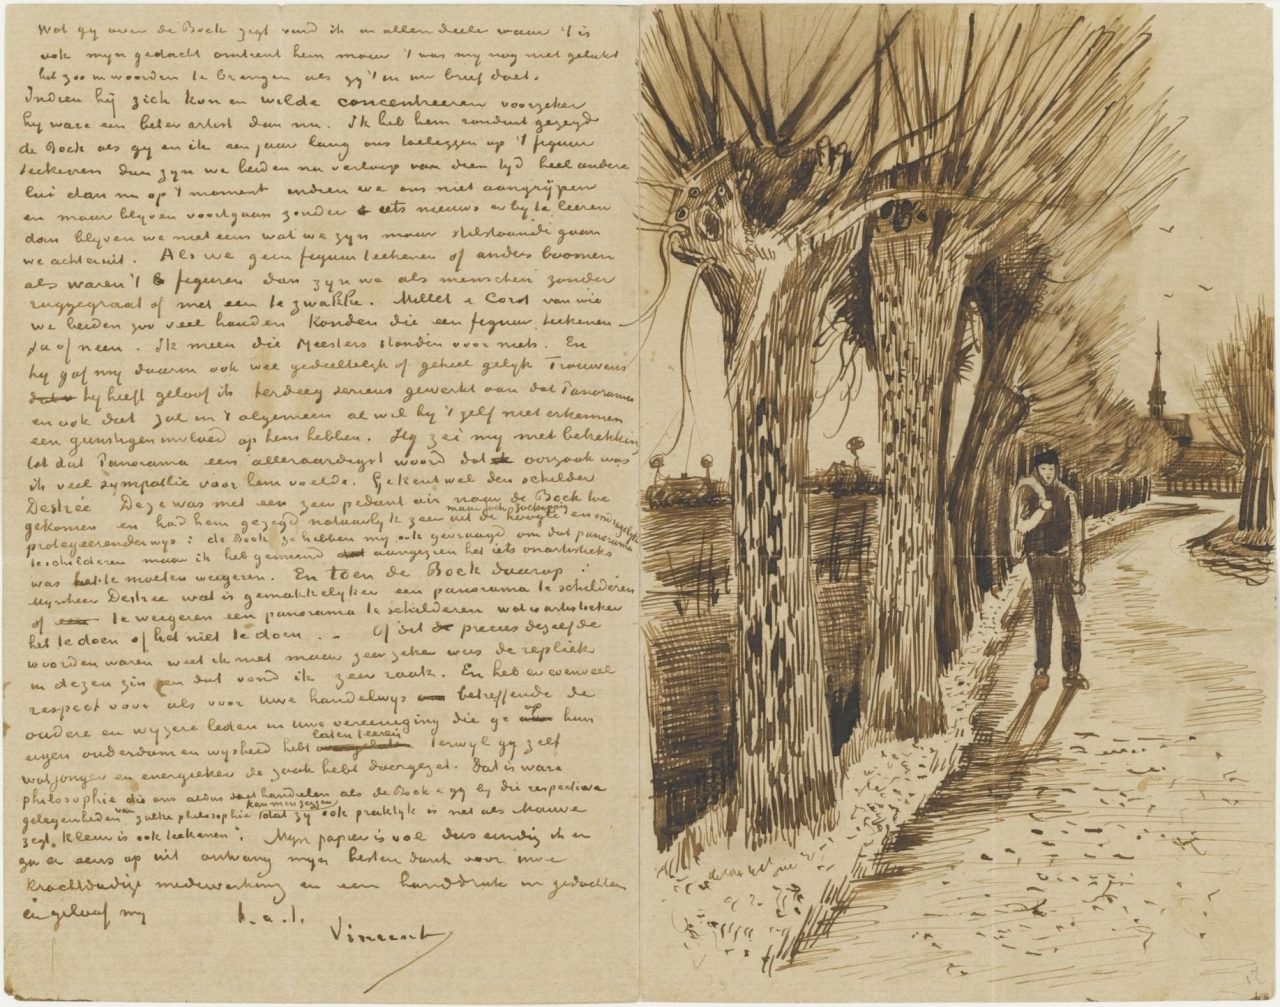 Wat gy over de Bock zegt vind ik in allen deele waar 't is
ook myn gedacht omtrent hem maar 't was my nog niet gelukt
het zoo in woorden te brengen als gy 't in uw brief doet.
Indien hij zich kon en wilde concentreeren voorzeker
hy ware een beter artist dan nu. Ik heb hem ronduit gezegd
de Bock als gy en ik een jaar lang ons toeleggen op 't figuur
teekenen dan zyn we beiden na verloop van dien tyd heel andere
lui dan nu op 't moment indien we ons niet aangrypen
en maar blyven voortgaan zonder iets nieuws er by te leeren
dan blyven we niet eens wat we zyn maar stilstaande gaan
we achteruit. Als we geen figuur teekenen of anders boomen
als waren 't figuren dan zyn we als menschen zonder
ruggegraat of met een te zwakke. Millet & Corot van wie
we beiden zoo veel houden konden die een figuur teekenen
ja of neen. Ik meen die Meesters stonden voor niets. En
hy gaf my daarin ook wel gedeeltelyk of geheel gelyk Trouwens
hy heeft geloof ik terdeeg serieus gewerkt aan dat Panorama
en ook dat zal in 't algemeen al wil hy 't zelf niet erkennen
een gunstigen invloed op hem hebben. Hy zei my met betrekking
tot dat Panorama een alleraardigst woord dat oorzaak was
ik veel sympathie voor hem voelde. Ge kent wel den schilder
Destrée Deze was met een zeer pedant air naar de Bock toe
gekomen en had hem gezegd natuurlyk zeer uit de hoogte en
protegeerenderwys: de Bock ze hebben my ook gevraagd om dat panorama
te schilderen maar ik heb gemeend aangezien het iets onartistieks
was te moeten weigeren. En toen de Bock daarop:
Mynheer Destrée wat is gemakkelyker een panorama te schilderen
of te weigeren een panorama te schilderen wat is artistieker
het te doen of het niet te doen. – Of dit precies dezelfde
woorden waren weet ik niet maar zeer zeker was de repliek
in dezen zin en dat vond ik zeer raak. En heb er evenveel
respect voor als voor uwe handelwys betreffende de
oudere en wyzere leden in uwe vereeniging die ge op hun
eigen ouderdom en wysheid hebt laten teeren terwyl gy zelf
wat jonger en energieker de zaak hebt doorgezet. Dat is ware
philosophie die ons aldus doet handelen als de Bock & gy by die respectieve
gelegenheden van zulke philosophie kan men zeggen dat zy ook praktyk is net als Mauve
zegt „klem is ook teekenen". Myn papier is vol dus eindig ik en
ga er eens op uit ontvang myn besten dank voor uwe
krachtdadige medewerking en een handdruk in gedachten
en geloof my      t. à. t.
Vincent